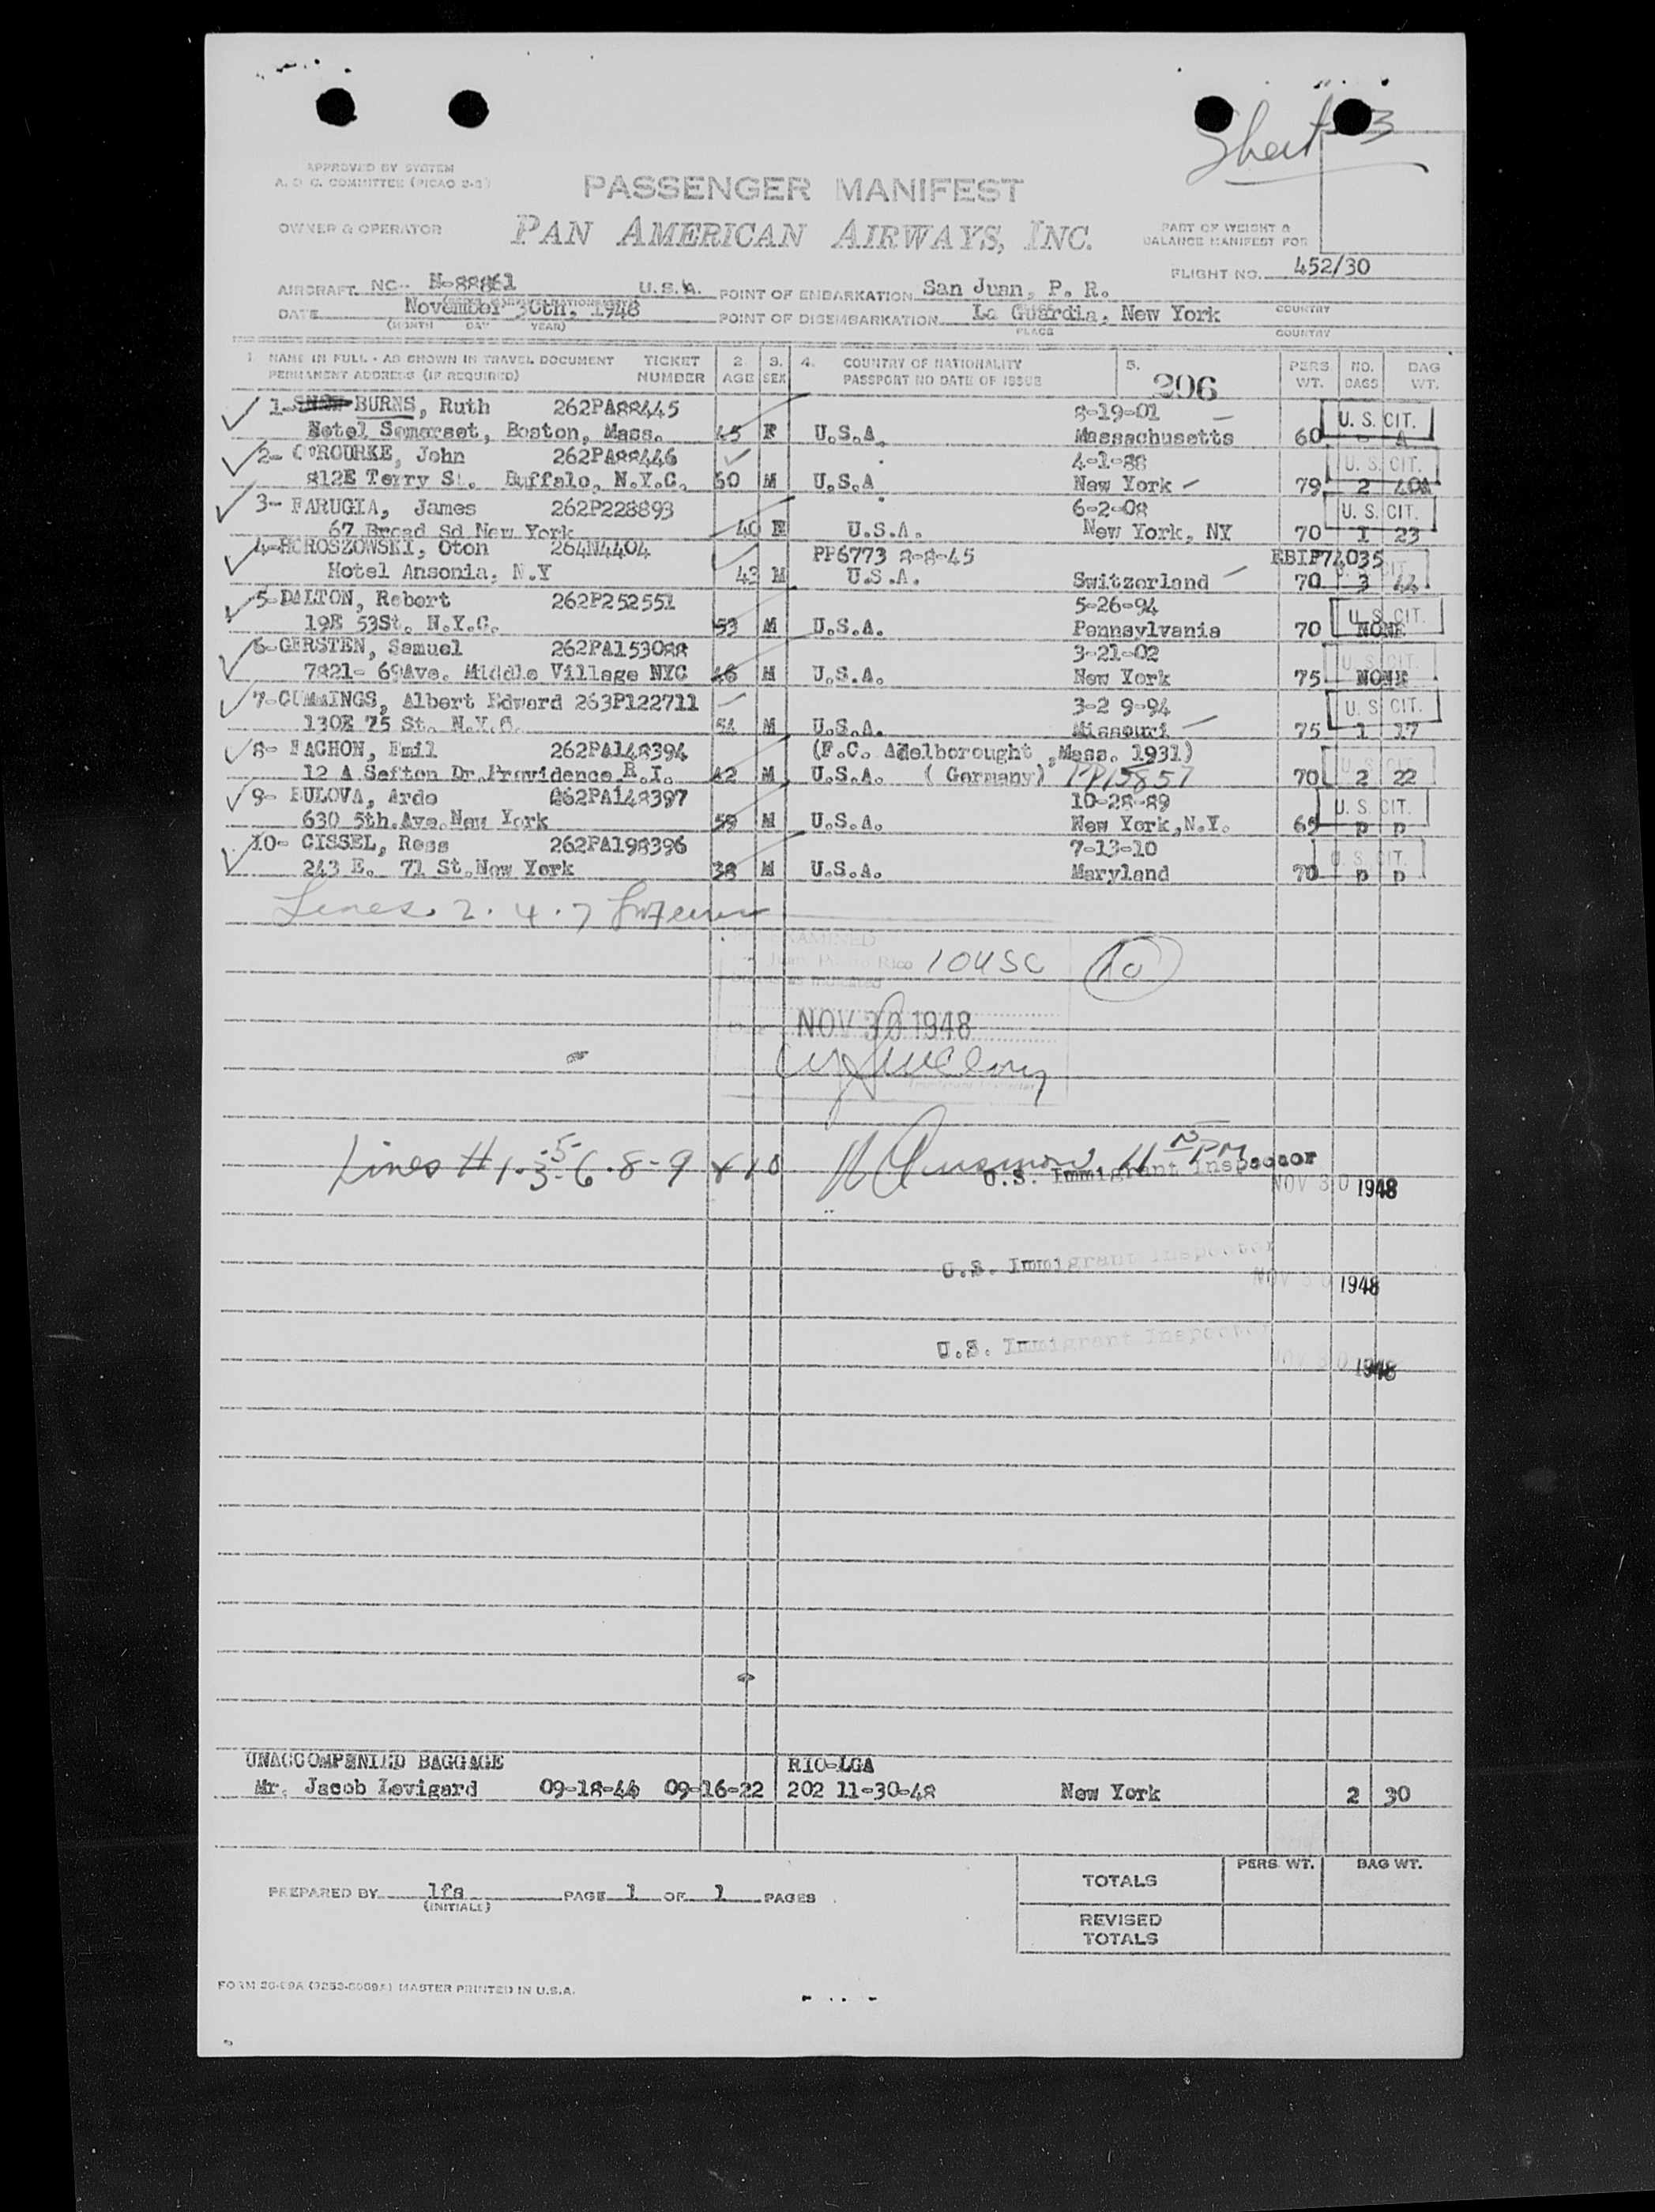 Sheet 3
APPROVED BY SYSTEM
A. O. C. COMMITTEE (PICAO 2-3)
PASSENGER MANIFEST
OWNER & OPERATOR
PAN AMERICAN AIRWAYS, INC.
PART OF WEIGHT &
BALANCE MANIFEST FOR
FLIGHT NO. 452/30
AIRCRAFT NC- N-88861 U.S.A. POINT OF EMBARKATION San Juan, P. R.
DATE November 30th, 1948 POINT OF DISEMBARKATION La Guardia, New York COUNTRY
(MONTH DAY YEAR) PLACE COUNTRY
1. NAME IN FULL - AS SHOWN IN TRAVEL DOCUMENT TICKET 2. 3. 4. COUNTRY OF NATIONALITY 5. 206 PERS. NO. BAG
PERMANENT ADDRESS (IF REQUIRED) NUMBER AGE SEX PASSPORT NO DATE OF ISSUE WT. BAGS WT.
1- BURNS, Ruth 262PA88445 8-19-01 U. S. CIT.
Hotel Somerset, Boston, Mass. 45 F U.S.A. Massachusetts 60
2- O'ROURKE, John 262PA88446 4-1-88 U. S. CIT.
812E Terry St. Buffalo, N.Y.C. 60 M U.S.A New York 79 2 40A
3- FARUGIA, James 262P228893 6-2-08 U. S. CIT.
67 Broad Sd New York 40 U.S.A. New York, NY 70 1 23
4-HOROSZOWSKI, Oton 264N4404 PP6773 8-8-45 EBIF74035
Hotel Ansonia, N.Y 43 M U.S.A. Switzerland 70 3 44
5-DALTON, Robert 262P252551 5-26-94 U.S. CIT.
19E 53St. N.Y.C. 53 M U.S.A. Pennsylvania 70 NONE
6-GERSTEN, Samuel 262PA153088 3-21-02 U.S. CIT.
7821- 69Ave. Middle Village NYC 46 M U.S.A. New York 75 NONE
7-CUMMINGS, Albert Edward 263P122711 3-2 9-94 U. S. CIT.
130E 75 St. N.Y.C. 54 M U.S.A. Missouri 75 1 17
8- FACHON, Emil 262PA148394 (F.C. Adelborought, Mass. 1931)
12 A Sefton Dr.Providence R.I. 42 M U.S.A. ( Germany) PP15857 70 2 22
9- BULOVA, Ardo 262PA148397 10-28-89 U. S. CIT.
630 5th.Ave.New York 59 M U.S.A. New York,N.Y. 65 p p
10- CISSEL, Ross 262PA198396 7-13-10 U. S. CIT.
243 E. 71 St.New York 38 M U.S.A. Maryland 70 p p
Lines. 2. 4. 7
EXAMINED
10USC 10
NOV 30 1948
Lines # 1-3-5-6-8-9 & 10 11 PM
U.S. Immigrant Inspector
NOV 30 1948
U.S. Immigrant Inspector
NOV 30 1948
U.S. Immigrant Inspector
NOV 30 1948
UNACCOMPENIED BAGGAGE RIO-LGA
Mr. Jacob Levigard 09-18-44 09-16-22 202 11-30-48 New York 2 30
PERS. WT. BAG WT.
TOTALS
PREPARED BY lfs PAGE 1 OF 1 PAGES
(INITIALS)
REVISED
TOTALS
FORM MASTER PRINTED IN U.S.A.